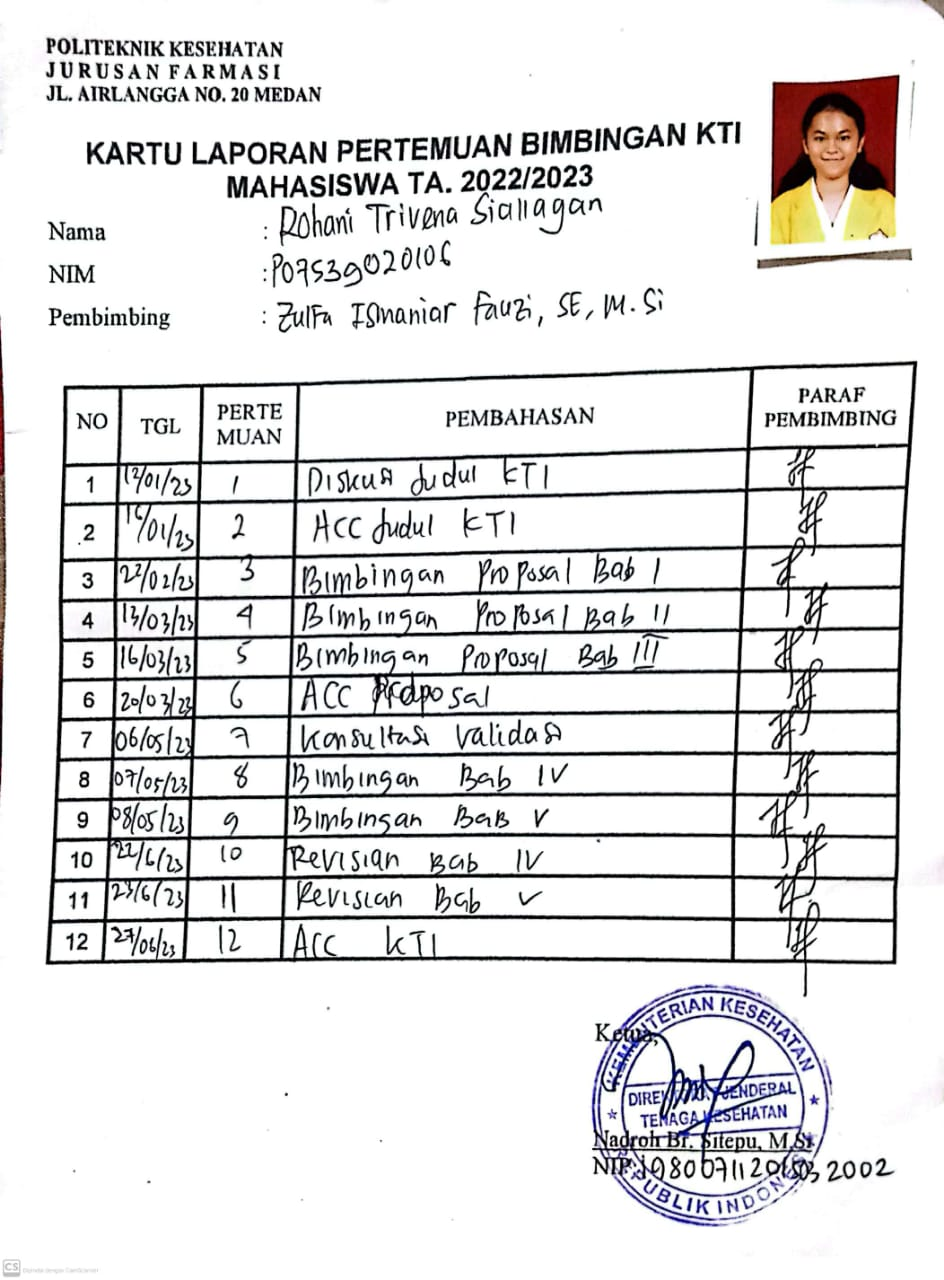 POLITEKNIK KESEHATAN
JURUSAN FARMASI
JL. AIRLANGGA NO. 20 MEDAN
KARTU LAPORAN PERTEMUAN BIMBINGAN KTI
MAHASISWA TA. 2022/2023
Nama : Rohani Trivena Siallagan
NIM : P07539020106
Pembimbing : Zulfa Ismaniar Fauzi, SE, M.Si
NO TGL PERTE MUAN PEMBAHASAN PARAF PEMBIMBING
1 12/01/23 1 Diskusi Judul KTI
2 16/01/23 2 ACC Judul KTI
3 22/02/23 3 Bimbingan Proposal Bab I
4 13/03/23 4 Bimbingan Proposal Bab II
5 16/03/23 5 Bimbingan Proposal Bab III
6 20/03/23 6 ACC Proposal
7 06/05/23 7 Konsultasi Validasi
8 07/05/23 8 Bimbingan Bab IV
9 08/05/23 9 Bimbingan Bab V
10 22/6/23 10 Revisian Bab IV
11 23/6/23 11 Revisian Bab V
12 27/06/23 12 ACC KTI
Ketua,
KEMENTERIAN KESEHATAN
DIREKTORAT JENDERAL
TENAGA KESEHATAN
Nadroh Br. Sitepu, M.Si
NIP. 198007112015032002
REPUBLIK INDONESIA
CS Dipindai dengan CamScanner